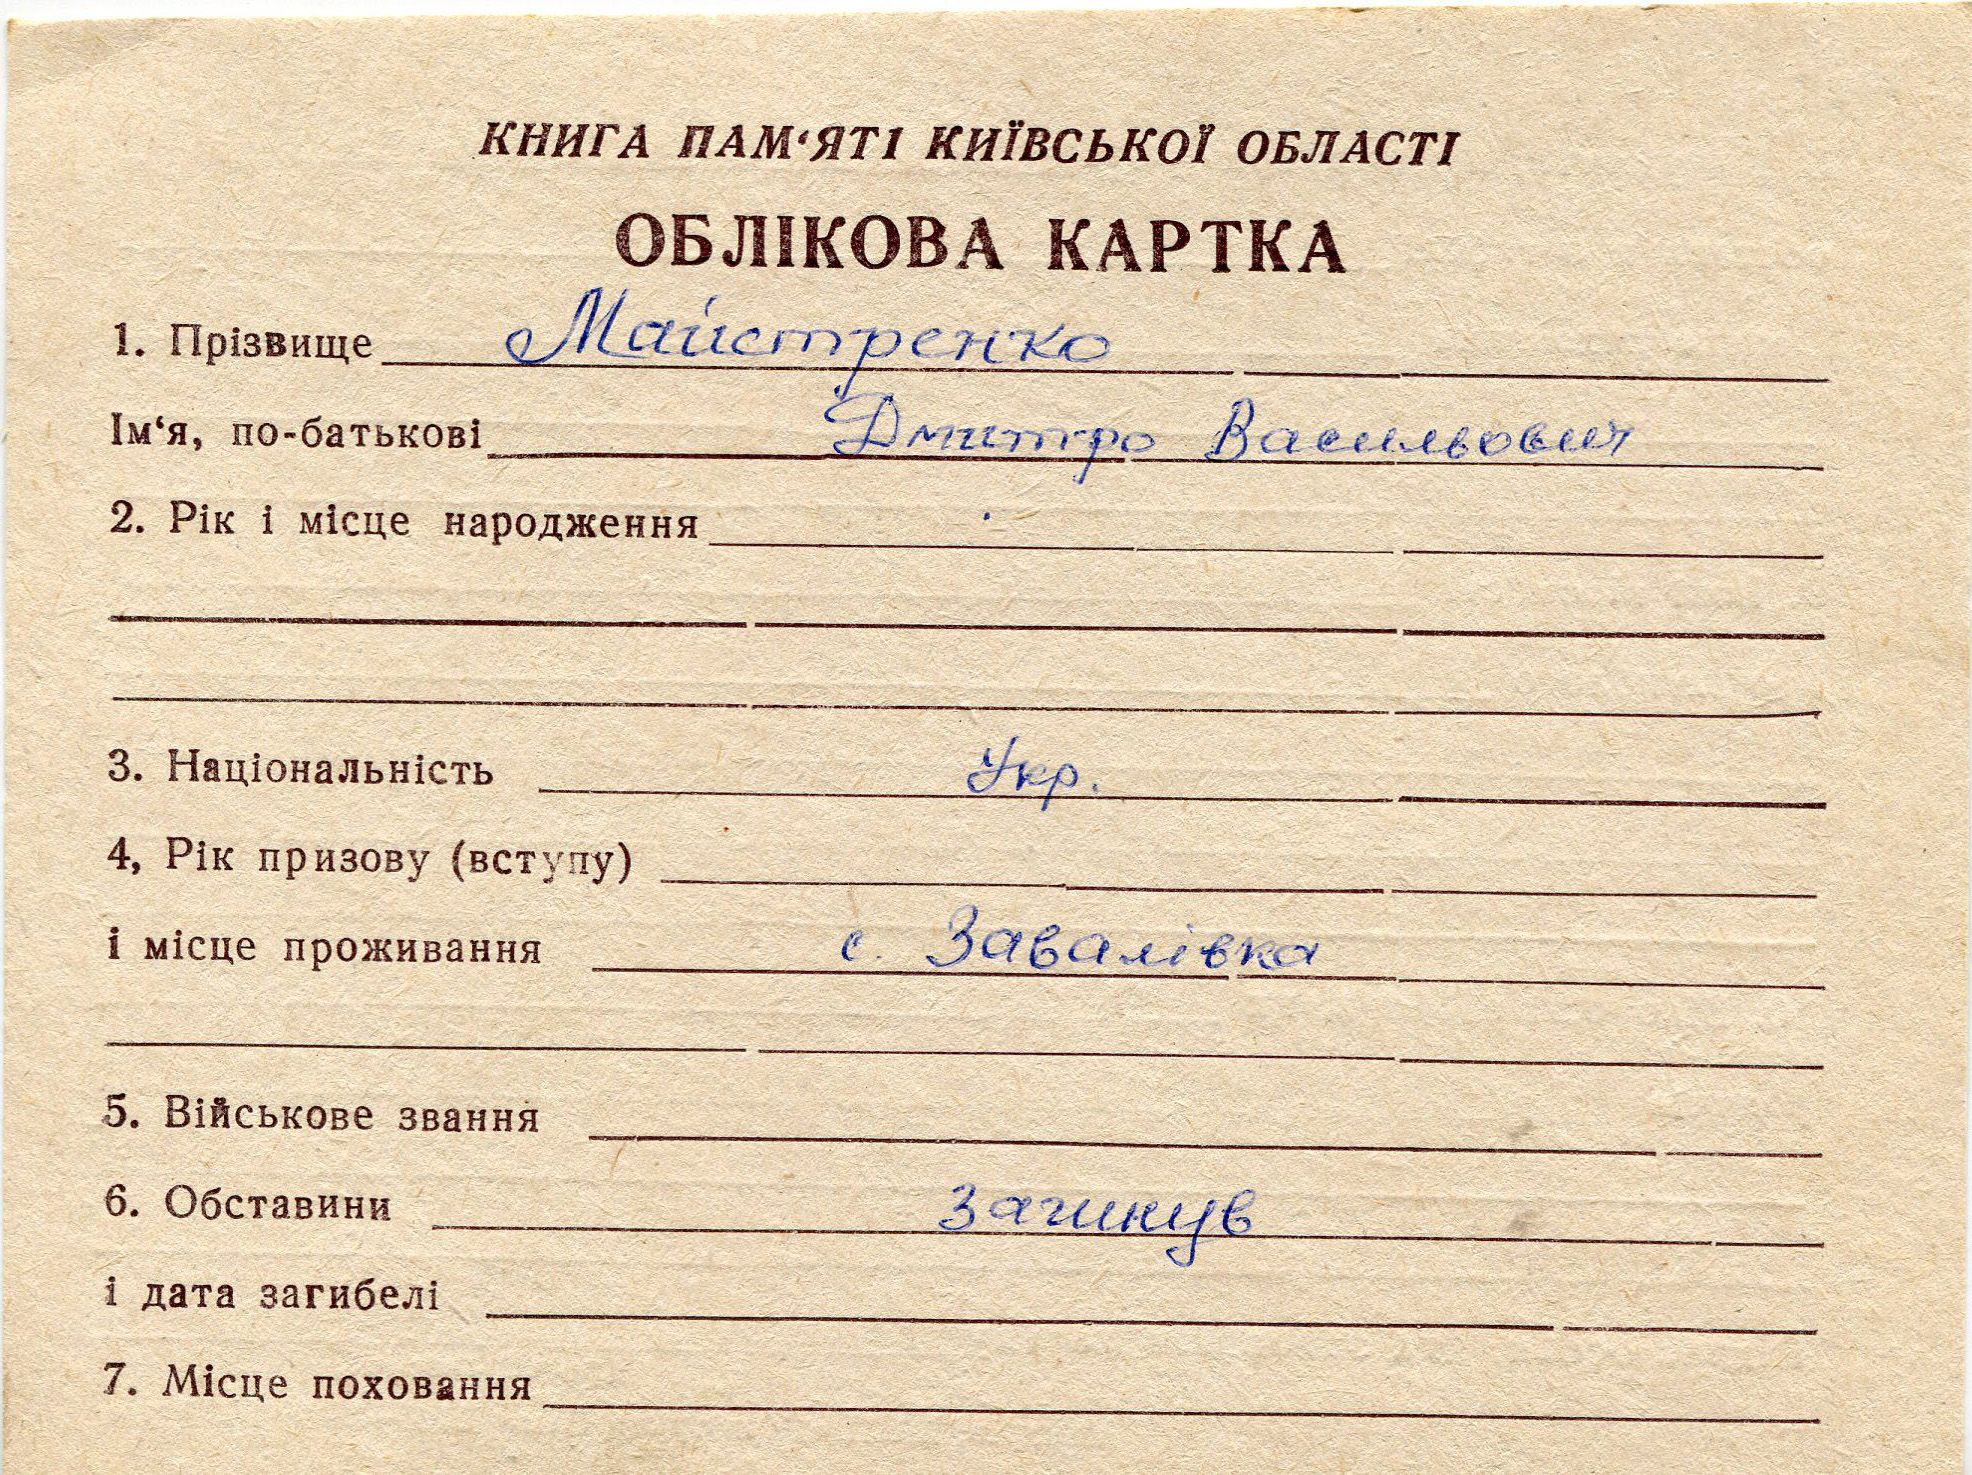 КНИГА ПАМ‘ЯТІ КИЇВСЬКОЇ ОБЛАСТІ
ОБЛІКОВА КАРТКА
1. Прізвище Майстренко
Ім‘я, по-батькові Дмитро Васильович
2. Рік і місце народження
3. Національність Укр.
4, Рік призову (вступу)
і місце проживання с. Завалівка
5. Військове звання
6. Обставини Загинув
і дата загибелі
7. Місце поховання